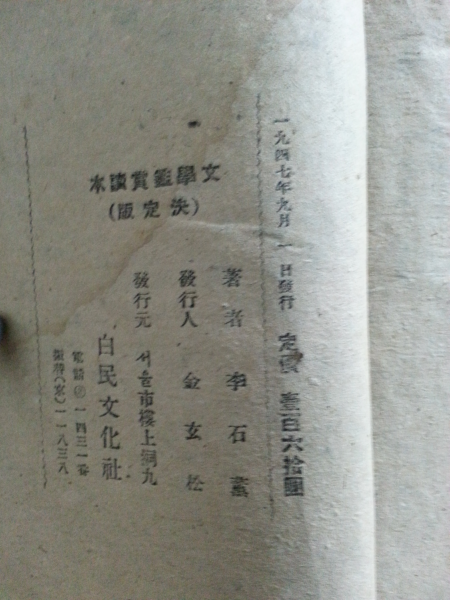 一九四七年九月一日發行 定價 壹百六拾圜
文學鑑賞讀本
(決定版)
著者 李石薰
發行人 金玄松
發行元 서울市樓上洞九
白民文化社
電話④一四三一番
振替(京)一一八三八